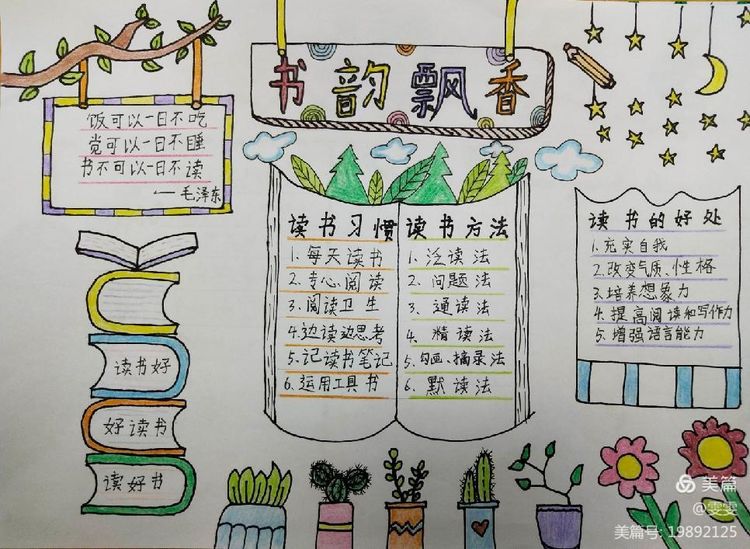 书韵飘香
饭可以一日不吃
觉可以一日不睡
书不可以一日不读
——毛泽东
读书好
好读书
读好书
读书习惯
1.每天读书
2.专心阅读
3.阅读卫生
4.边读边思考
5.记读书笔记
6.运用工具书
读书方法
1.泛读法
2.问题法
3.通读法
4.精读法
5.勾画、摘录法
6.默读法
读书的好处
1.充实自我
2.改变气质、性格
3.培养想象力
4.提高阅读和写作力
5.增强语言能力
美篇
@雯雯
美篇号: 19892125